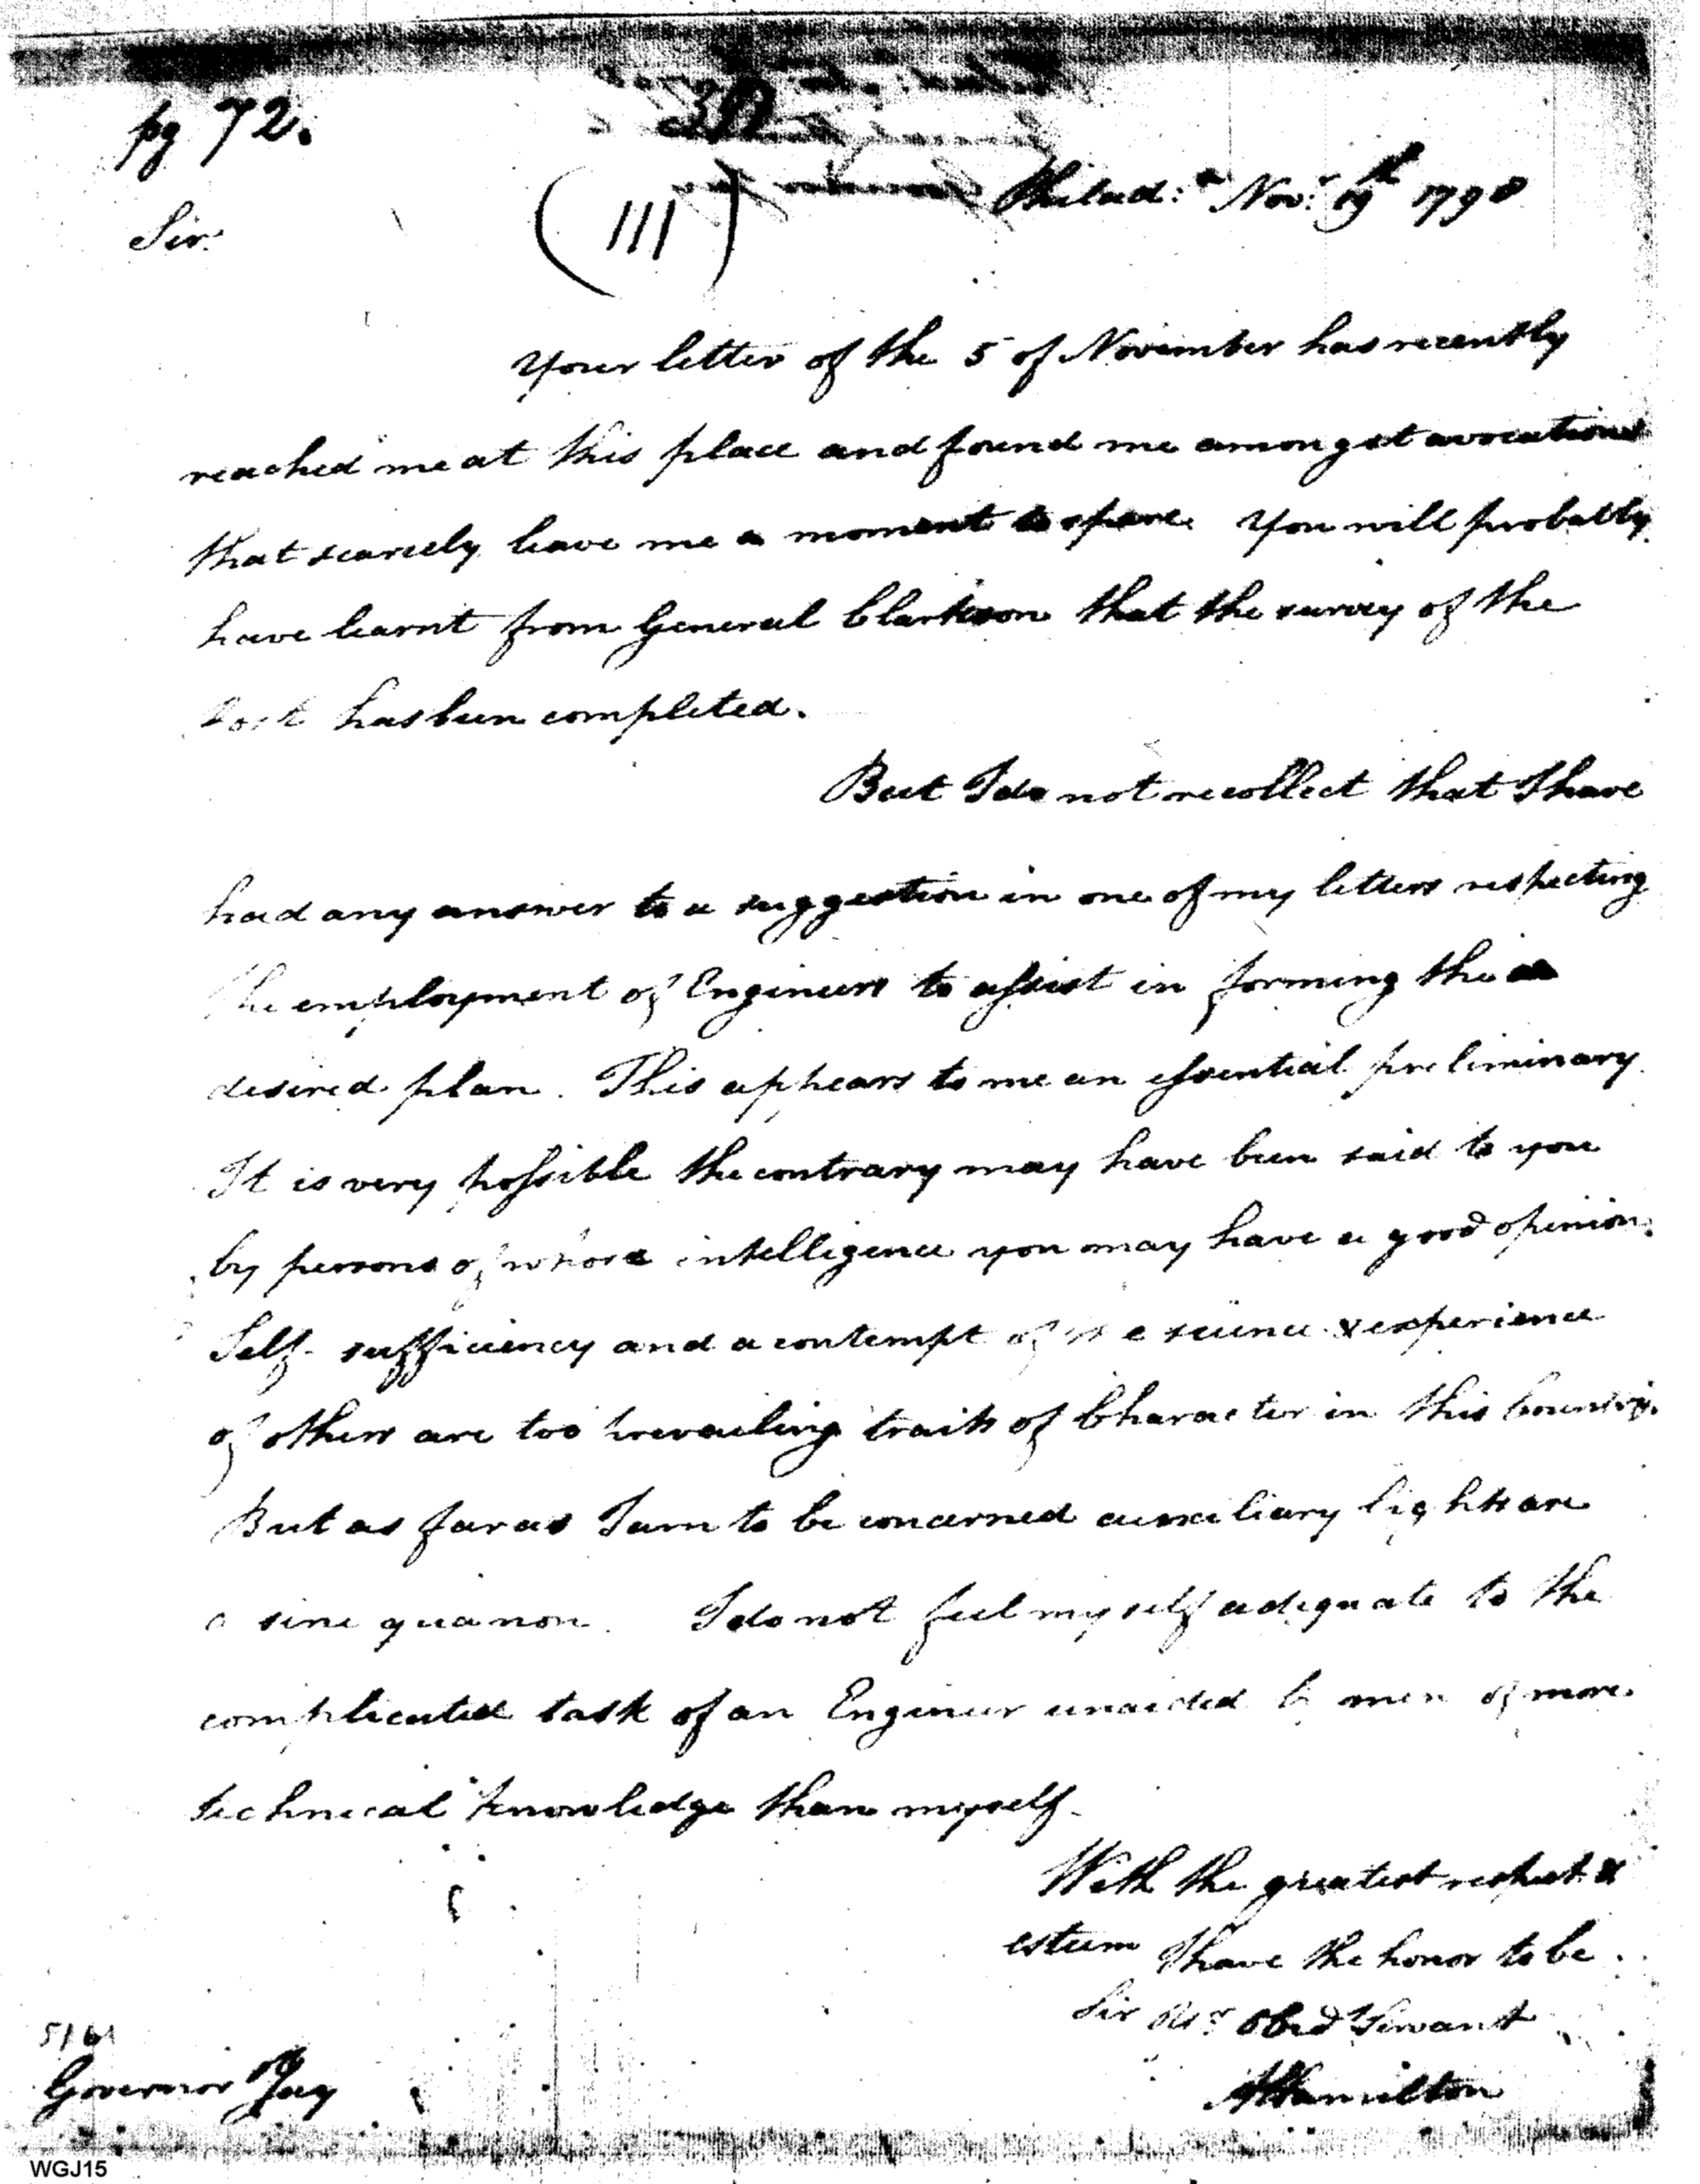 pg 72.
(111)
Philad:a Nov:r 19th 1798
Sir.
Your letter of the 5 of November has recently
reached me at this place and found me amongst avocations
that scarcely leave me a moment to spare. You will probably
have learnt from General Clarkson that the survey of the
has been completed.
But I do not recollect that I have
had any answer to a suggestion in one of my letters respecting
the employment of Engineers to assist in forming the
desired plan. This appears to me an essential preliminary.
It is very possible the contrary may have been said to you
by persons of whose intelligence you may have a good opinion.
Self-sufficiency and a contempt of the science & experience
of others are too prevailing traits of Character in this Country.
But as far as I am to be concerned auxiliary lights are
a sine qua non. I do not feel myself adequate to the
complicated task of an Engineer unaided by men of more
technical knowledge than myself.
With the greatest respect &
esteem I have the honor to be
Sir Yr Obed Servant
AHamilton
Governor Jay
WGJ15